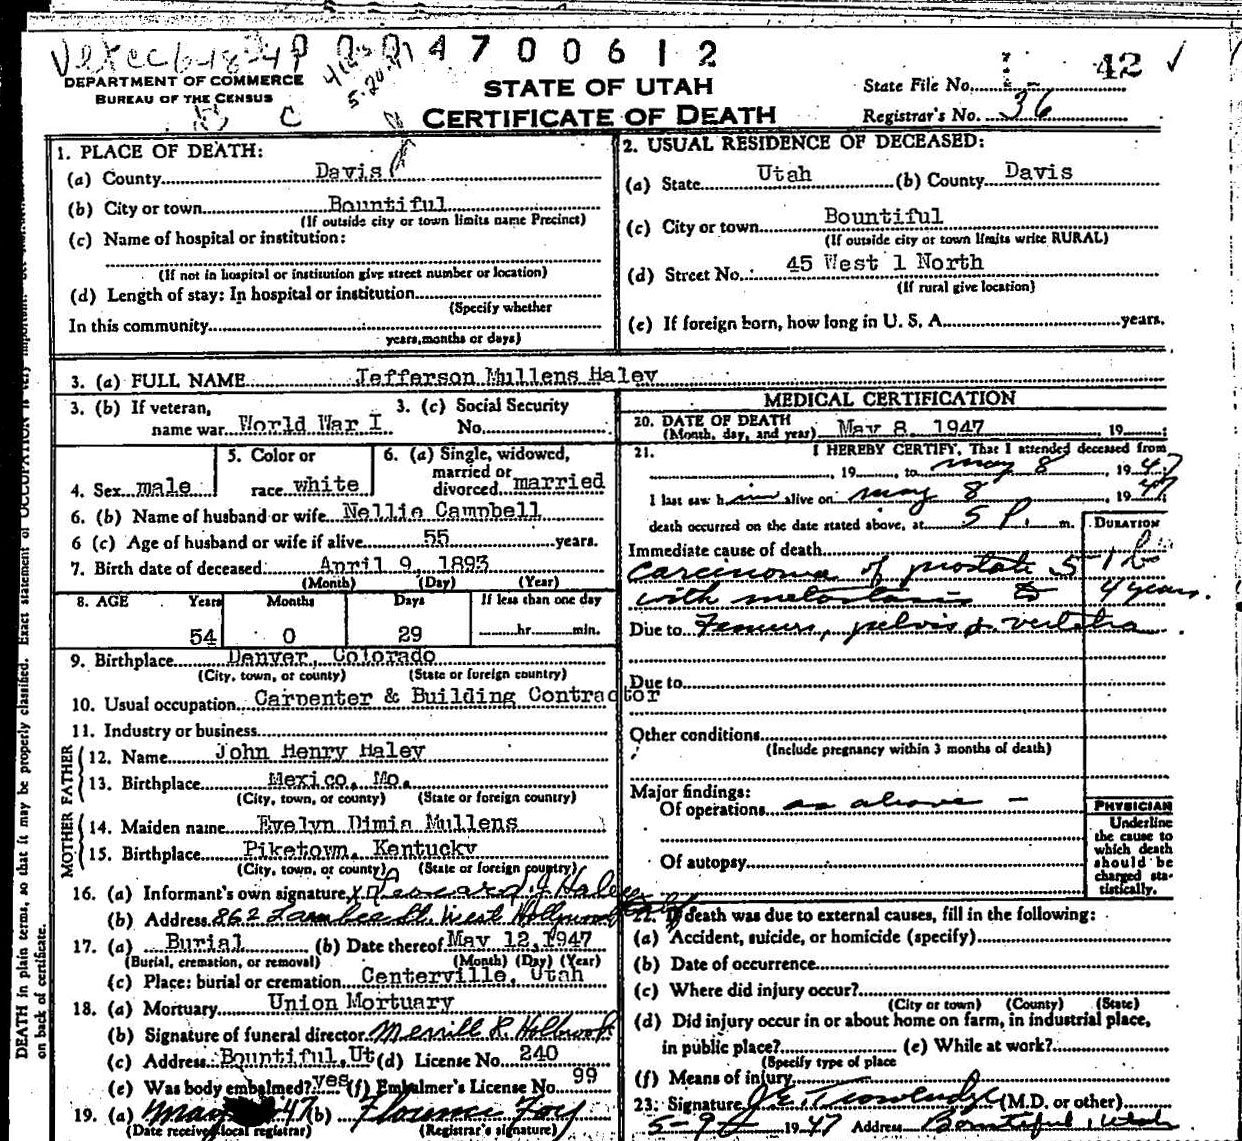 4700612
42
DEPARTMENT OF COMMERCE
BUREAU OF THE CENSUS
STATE OF UTAH
CERTIFICATE OF DEATH
State File No.
Registrar's No. 36
1. PLACE OF DEATH:
(a) County Davis
(b) City or town Bountiful
(If outside city or town limits name Precinct)
(c) Name of hospital or institution:
(If not in hospital or institution give street number or location)
(d) Length of stay: In hospital or institution
(Specify whether
In this community
years, months or days)
2. USUAL RESIDENCE OF DECEASED:
(a) State Utah (b) County Davis
(c) City or town Bountiful
(If outside city or town limits write RURAL)
(d) Street No. 45 West 1 North
(If rural give location)
(e) If foreign born, how long in U. S. A. years.
3. (a) FULL NAME Jefferson Mullens Haley
3. (b) If veteran, name war World War I
3. (c) Social Security No.
4. Sex male
5. Color or race white
6. (a) Single, widowed, married or divorced married
6. (b) Name of husband or wife Nellie Campbell
6 (c) Age of husband or wife if alive 55 years.
7. Birth date of deceased: April 9, 1893
(Month) (Day) (Year)
8. AGE Years Months Days If less than one day
54 0 29 hr. min.
9. Birthplace Denver, Colorado
(City, town, or county) (State or foreign country)
10. Usual occupation Carpenter & Building Contractor
11. Industry or business
FATHER
12. Name John Henry Haley
13. Birthplace Mexico, Mo.
(City, town, or county) (State or foreign country)
MOTHER
14. Maiden name Evelyn Dimis Mullens
15. Birthplace Piketown, Kentucky
(City, town, or county) (State or foreign country)
16. (a) Informant's own signature Haley
(b) Address 862 West Hollywood
17. (a) Burial (b) Date thereof May 12, 1947
(Burial, cremation, or removal) (Month) (Day) (Year)
(c) Place: burial or cremation Centerville, Utah
18. (a) Mortuary Union Mortuary
(b) Signature of funeral director Merrill R. Holbrook
(c) Address Bountiful, Ut (d) License No. 240
(e) Was body embalmed? yes (f) Embalmer's License No. 99
19. (a) May 47 (b) Florence Foy
(Date received local registrar) (Registrar's signature)
MEDICAL CERTIFICATION
20. DATE OF DEATH
(Month, day, and year) May 8, 1947, 19
21. I HEREBY CERTIFY, That I attended deceased from
, 19 , to May 8, 1947
I last saw him alive on May 8, 1947
death occurred on the date stated above, at 5 P. m.
DURATION
Immediate cause of death
carcinoma of prostate
with metastasis to 4 years.
Due to Femurs, pelvis & vertebra
Due to
Other conditions
(Include pregnancy within 3 months of death)
Major findings:
Of operations as above -
Of autopsy
PHYSICIAN
Underline
the cause to
which death
should be
charged sta-
tistically.
22. If death was due to external causes, fill in the following:
(a) Accident, suicide, or homicide (specify)
(b) Date of occurrence
(c) Where did injury occur?
(City or town) (County) (State)
(d) Did injury occur in or about home on farm, in industrial place,
in public place? (e) While at work?
(Specify type of place
(f) Means of injury
23. Signature (M.D. or other)
5-9 1947 Address Bountiful, Utah
DEATH in plain terms, so that it may be properly classified. Exact statement of OCCUPATION is very important.
on back of certificate.